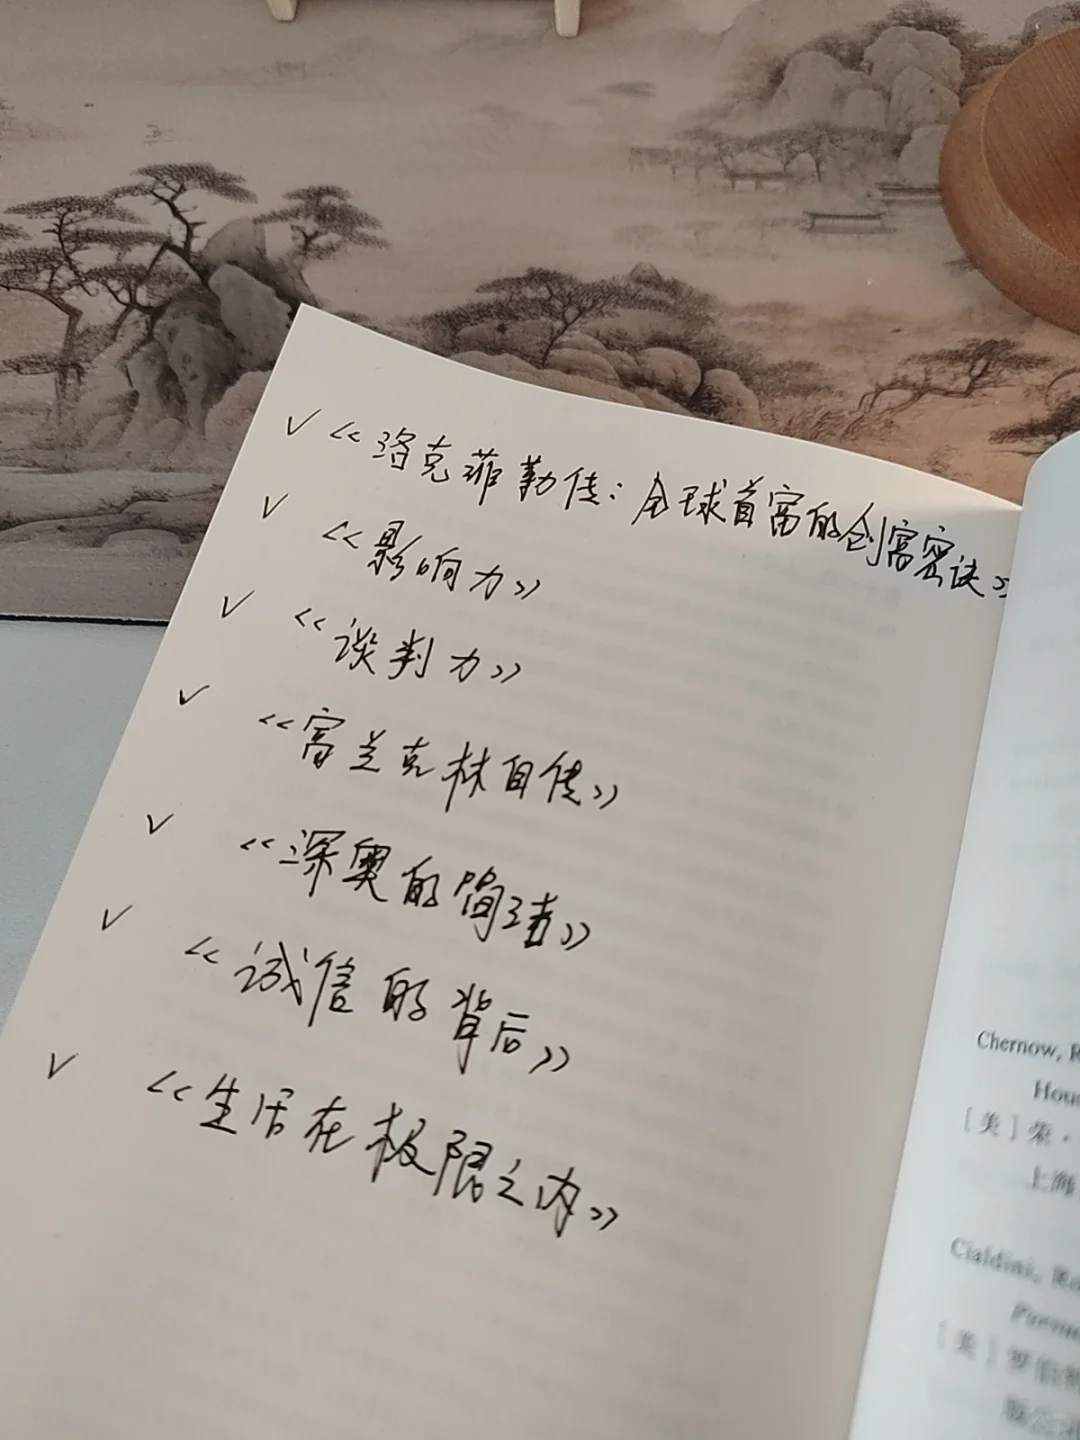 ✓《洛克菲勒传：全球首富的创富密诀》
✓《影响力》
✓《谈判力》
✓《富兰克林自传》
✓《深奥的简洁》
✓《诚信的背后》
✓《生活在极限之内》
Chernow, R
Hous
［美］荣·
上海
Cialdini, Ro
［美］罗伯特